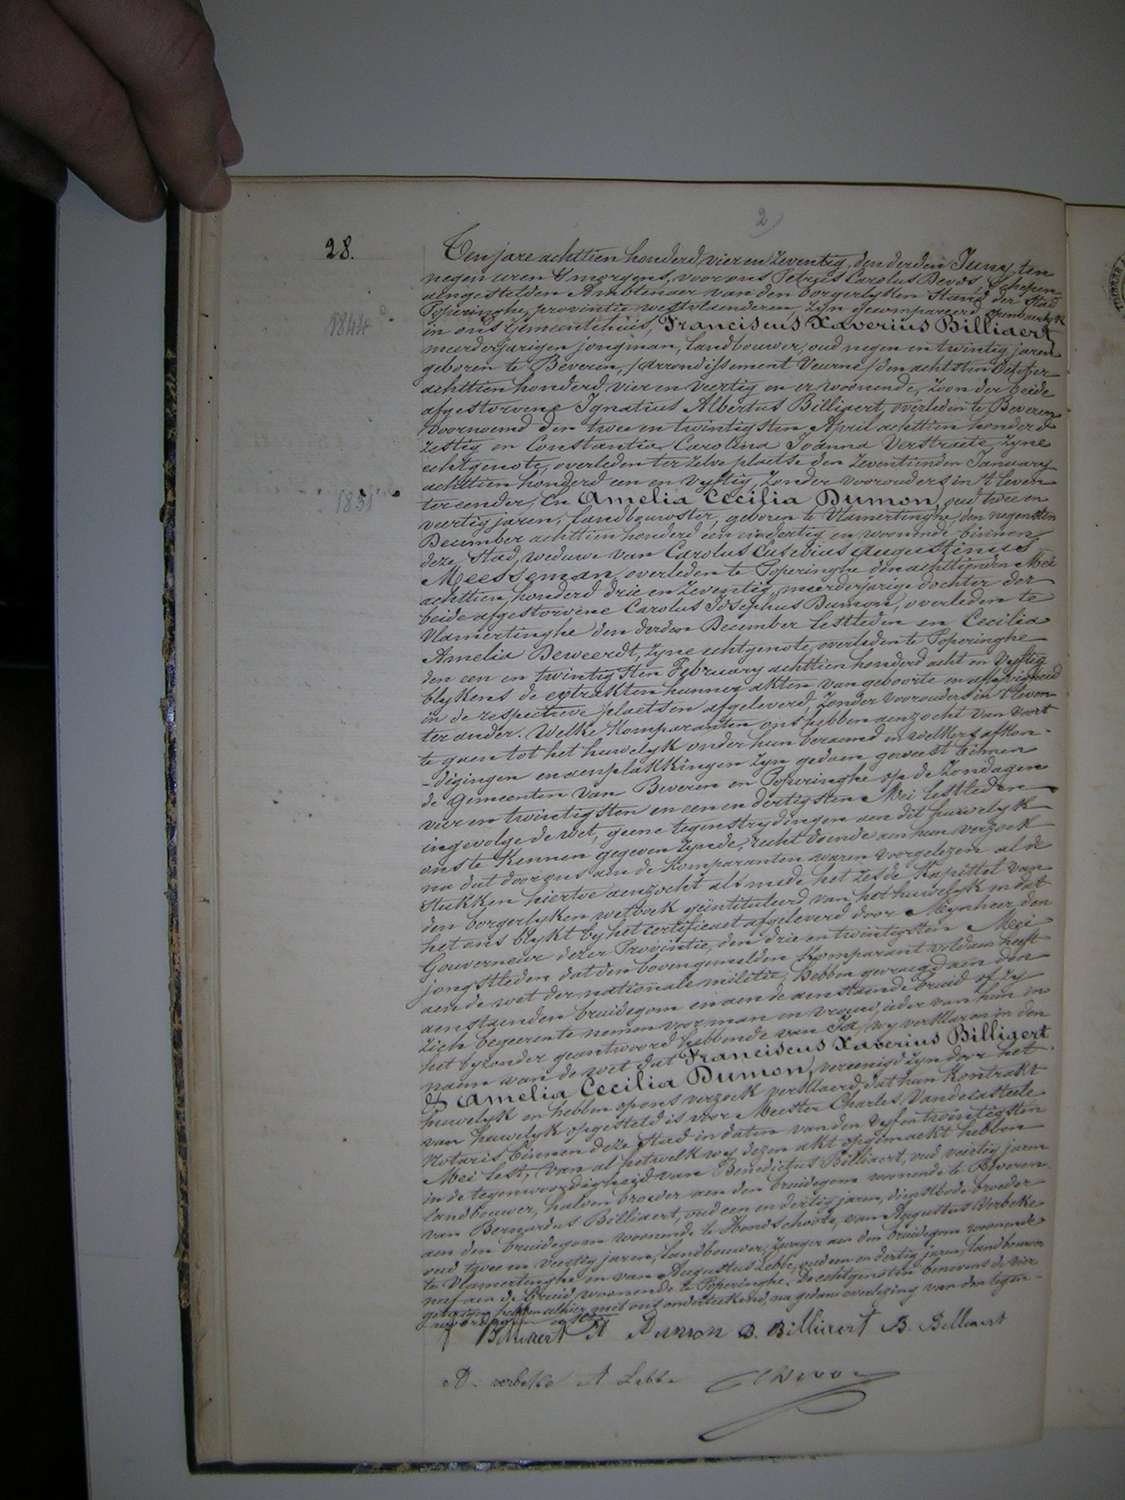 2
28.
Ten jare achttien honderd vier en zeventig, den derden Juny, ten
negen uren 's morgens, voor ons Petrus Carolus Devos Schepen
aengestelden Ambtenaer van den borgerlyken Stand der Stad
Poperinghe, provintie westvlaenderen, zyn gecompareerd openbaerlyk
1844
in ons Gemeentehuis, Franciscus Xaverius Billiaert
meerderjarigen jongman, landbouwer, oud negen en twintig jaren
geboren te Beveren, (arrondissement Veurne) den achtsten
achttien honderd vier en veertig en er woonende, zoon der beide
afgestorvene Ignatius Albertus Billiaert, overleden te Beveren
voornoemd den twee en twintigsten April achttien honderd
zestig en Constantia Carolina Joanna Verstraete, zyne
echtgenote, overleden ter zelve plaetse den zeventienden January
achttien honderd een en vyftig, zonder voorouders in 't leven
1831
ter eender, En Amelia Cecilia Dumon, oud twee en
veertig jaren, landbouwster, geboren te Vlamertinghe, den negensten
December achttien honderd een en dertig en woonende binnen
deze Stad, weduwe van Carolus Eusebius Augustinus
Meesseman, overleden te Poperinghe den achttienden Mei
achttien honderd drie en zeventig, meerderjarige dochter der
beide afgestorvene Carolus Josephus Dumon, overleden te
Vlamertinghe den derden December lestleden en Cecilia
Amelia Deweerdt, zyne echtgenote, overleden te Poperinghe
den een en twintigsten February achttien honderd acht en vyftig
blykens de extrakten hunner akten van geboorte en
in de respectieve plaetsen afgeleverd, zonder voorouders in 't leven
ter ander. Welke Komparanten ons hebben aenzocht van voort
te gaen tot het huwelyk onder hun beraemd en welkers afkon-
-digingen en aenplakkingen zyn gedaen geweest binnen
de Gemeenten van Beveren en Poperinghe op de Zondagen
vier en twintigsten en een en dertigsten Mei lestleden
ingevolge de wet, geene tegenstrydingen aen dit huwelyk
ons te kennen gegeven zynde, recht doende aen hun verzoek
na dat door ons aen de Komparanten waren voorgelezen al de
stukken hiertoe aenzocht als mede het zesde Kapittel van
den borgerlyken wetboek geïntituleerd van het huwelyk en dat
het ons blykt by het certificaet afgeleverd door Mynheer den
Gouverneur dezer Provintie, den drie en twintigsten Mei
jongstleden dat den bovengemelden Komparant voldaen heeft
aen de wet der nationale militie, Hebben gevraegd aen den
aenstaenden bruidegom en aen de aenstaende bruid of zy
zich begeerente nemen voor man en vrouw, ieder van hun in
het byzonder geantwoord hebbende van Ja, wy verklaren in den
naem van de wet dat Franciscus Xaverius Billiaert
& Amelia Cecilia Dumon, vereenigd zyn door het
huwelyk en hebben op ons verzoek verklaerd dat hun kontrakt
van huwelyk opgesteld is voor Meester Charles Vandecasteele
Notaris binnen deze Stad in daten van den vyf en twintigsten
Mei lest, van al hetwelk wy dezen akt opgemaekt hebben
in de tegenwoordigheid van Benedictus Billiaert, oud veertig jaren
landbouwer, halven broeder aen den bruidegom woonende te Beveren
van Bernardus Billiaert, oud een en dertig jaren, dienstbode broeder
aen den bruidegom woonende te Hondschoote, van Augustus Verbeke
oud twee en veertig jaren, landbouwer, zwager aen den bruidegom woonende
te Vlamertinghe en van Augustus Lebbe, oud een en dertig jaren, landbouwer
neef aen de bruid, woonende te Poperinghe. De echtgenoten benevens de vier
getuigen hebben alhier met ons onderteekend, na gedane voorlezing van den tegen-
woordigen
Billiaert A Dumon B. Billiaert B. Billiaert
A. verbeke A Lebbe